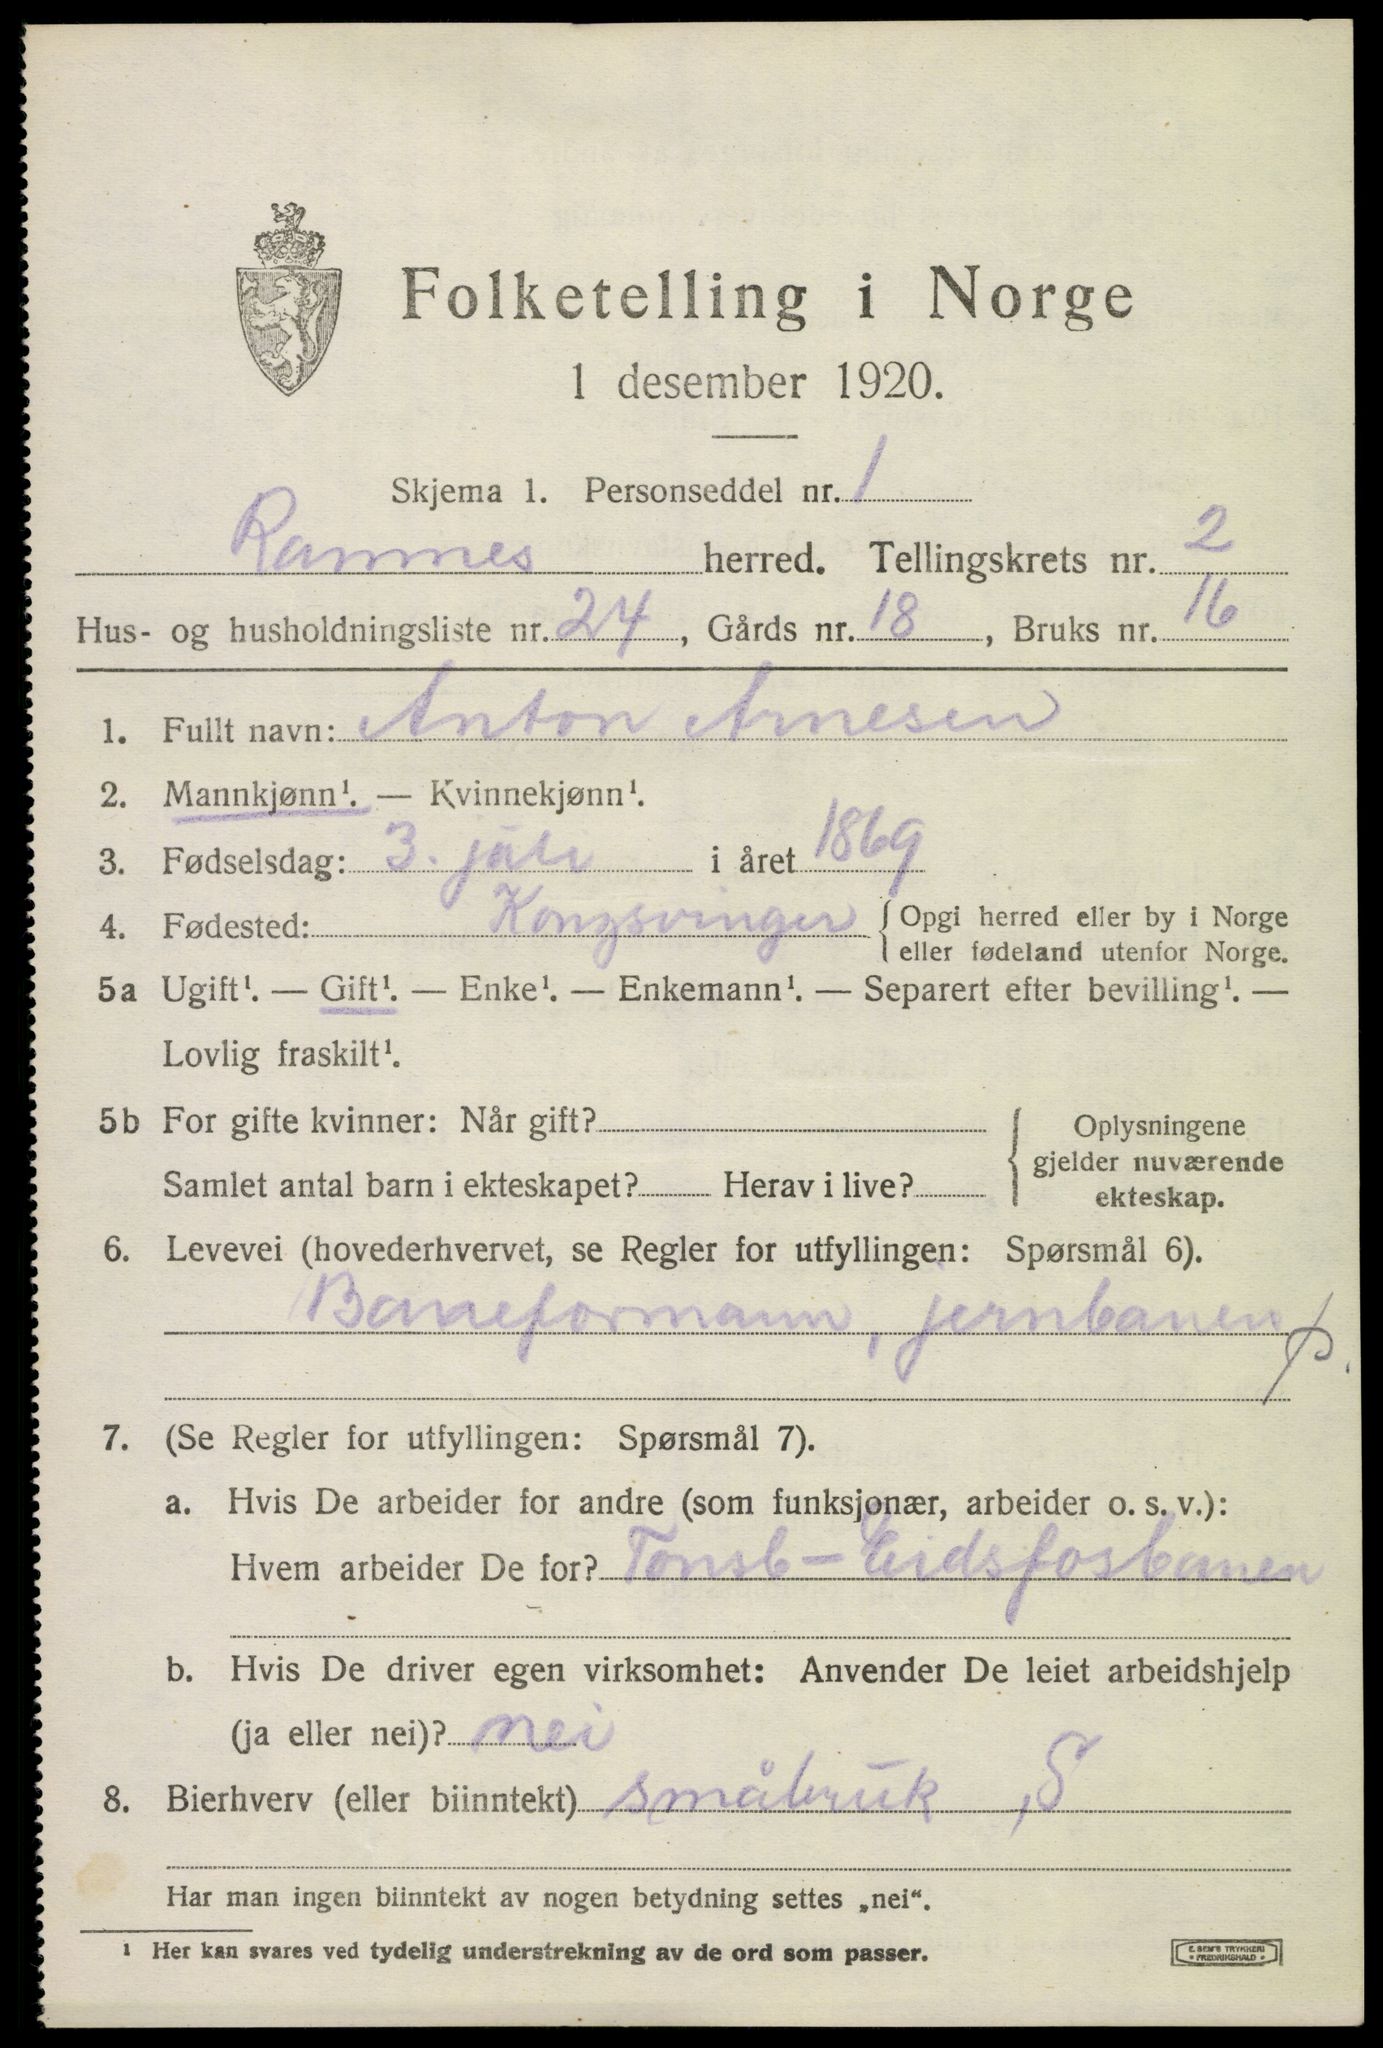 Folketelling i Norge
1 desember 1920.
Skjema 1. Personseddel nr. 1
Ramnes herred. Tellingskrets nr. 2
Hus- og husholdningsliste nr. 24, Gårds nr. 18, Bruks nr. 16
1. Fullt navn: Anton Arnesen
2. Mannkjønn¹. — Kvinnekjønn¹.
3. Fødselsdag: 3. juli i året 1869
4. Fødested: Kongsvinger { Opgi herred eller by i Norge
eller fødeland utenfor Norge.
5a Ugift¹. — Gift¹. — Enke¹. — Enkemann¹. — Separert efter bevilling¹. —
Lovlig fraskilt¹.
5b For gifte kvinner: Når gift?
Samlet antal barn i ekteskapet? Herav i live?
{ Oplysningene
gjelder nuværende
ekteskap.
6. Levevei (hovederhvervet, se Regler for utfyllingen: Spørsmål 6).
Baneformann, jernbanen
p.
7. (Se Regler for utfyllingen: Spørsmål 7).
a. Hvis De arbeider for andre (som funksjonær, arbeider o. s. v.):
Hvem arbeider De for? Tønsb – Eidsfosbanen
b. Hvis De driver egen virksomhet: Anvender De leiet arbeidshjelp
(ja eller nei)? nei
8. Bierhverv (eller biinntekt) småbruk , S
Har man ingen biinntekt av nogen betydning settes „nei“.
¹ Her kan svares ved tydelig understrekning av de ord som passer.
E. SEM'S TRYKKERI
• FREDRIKSHALD •